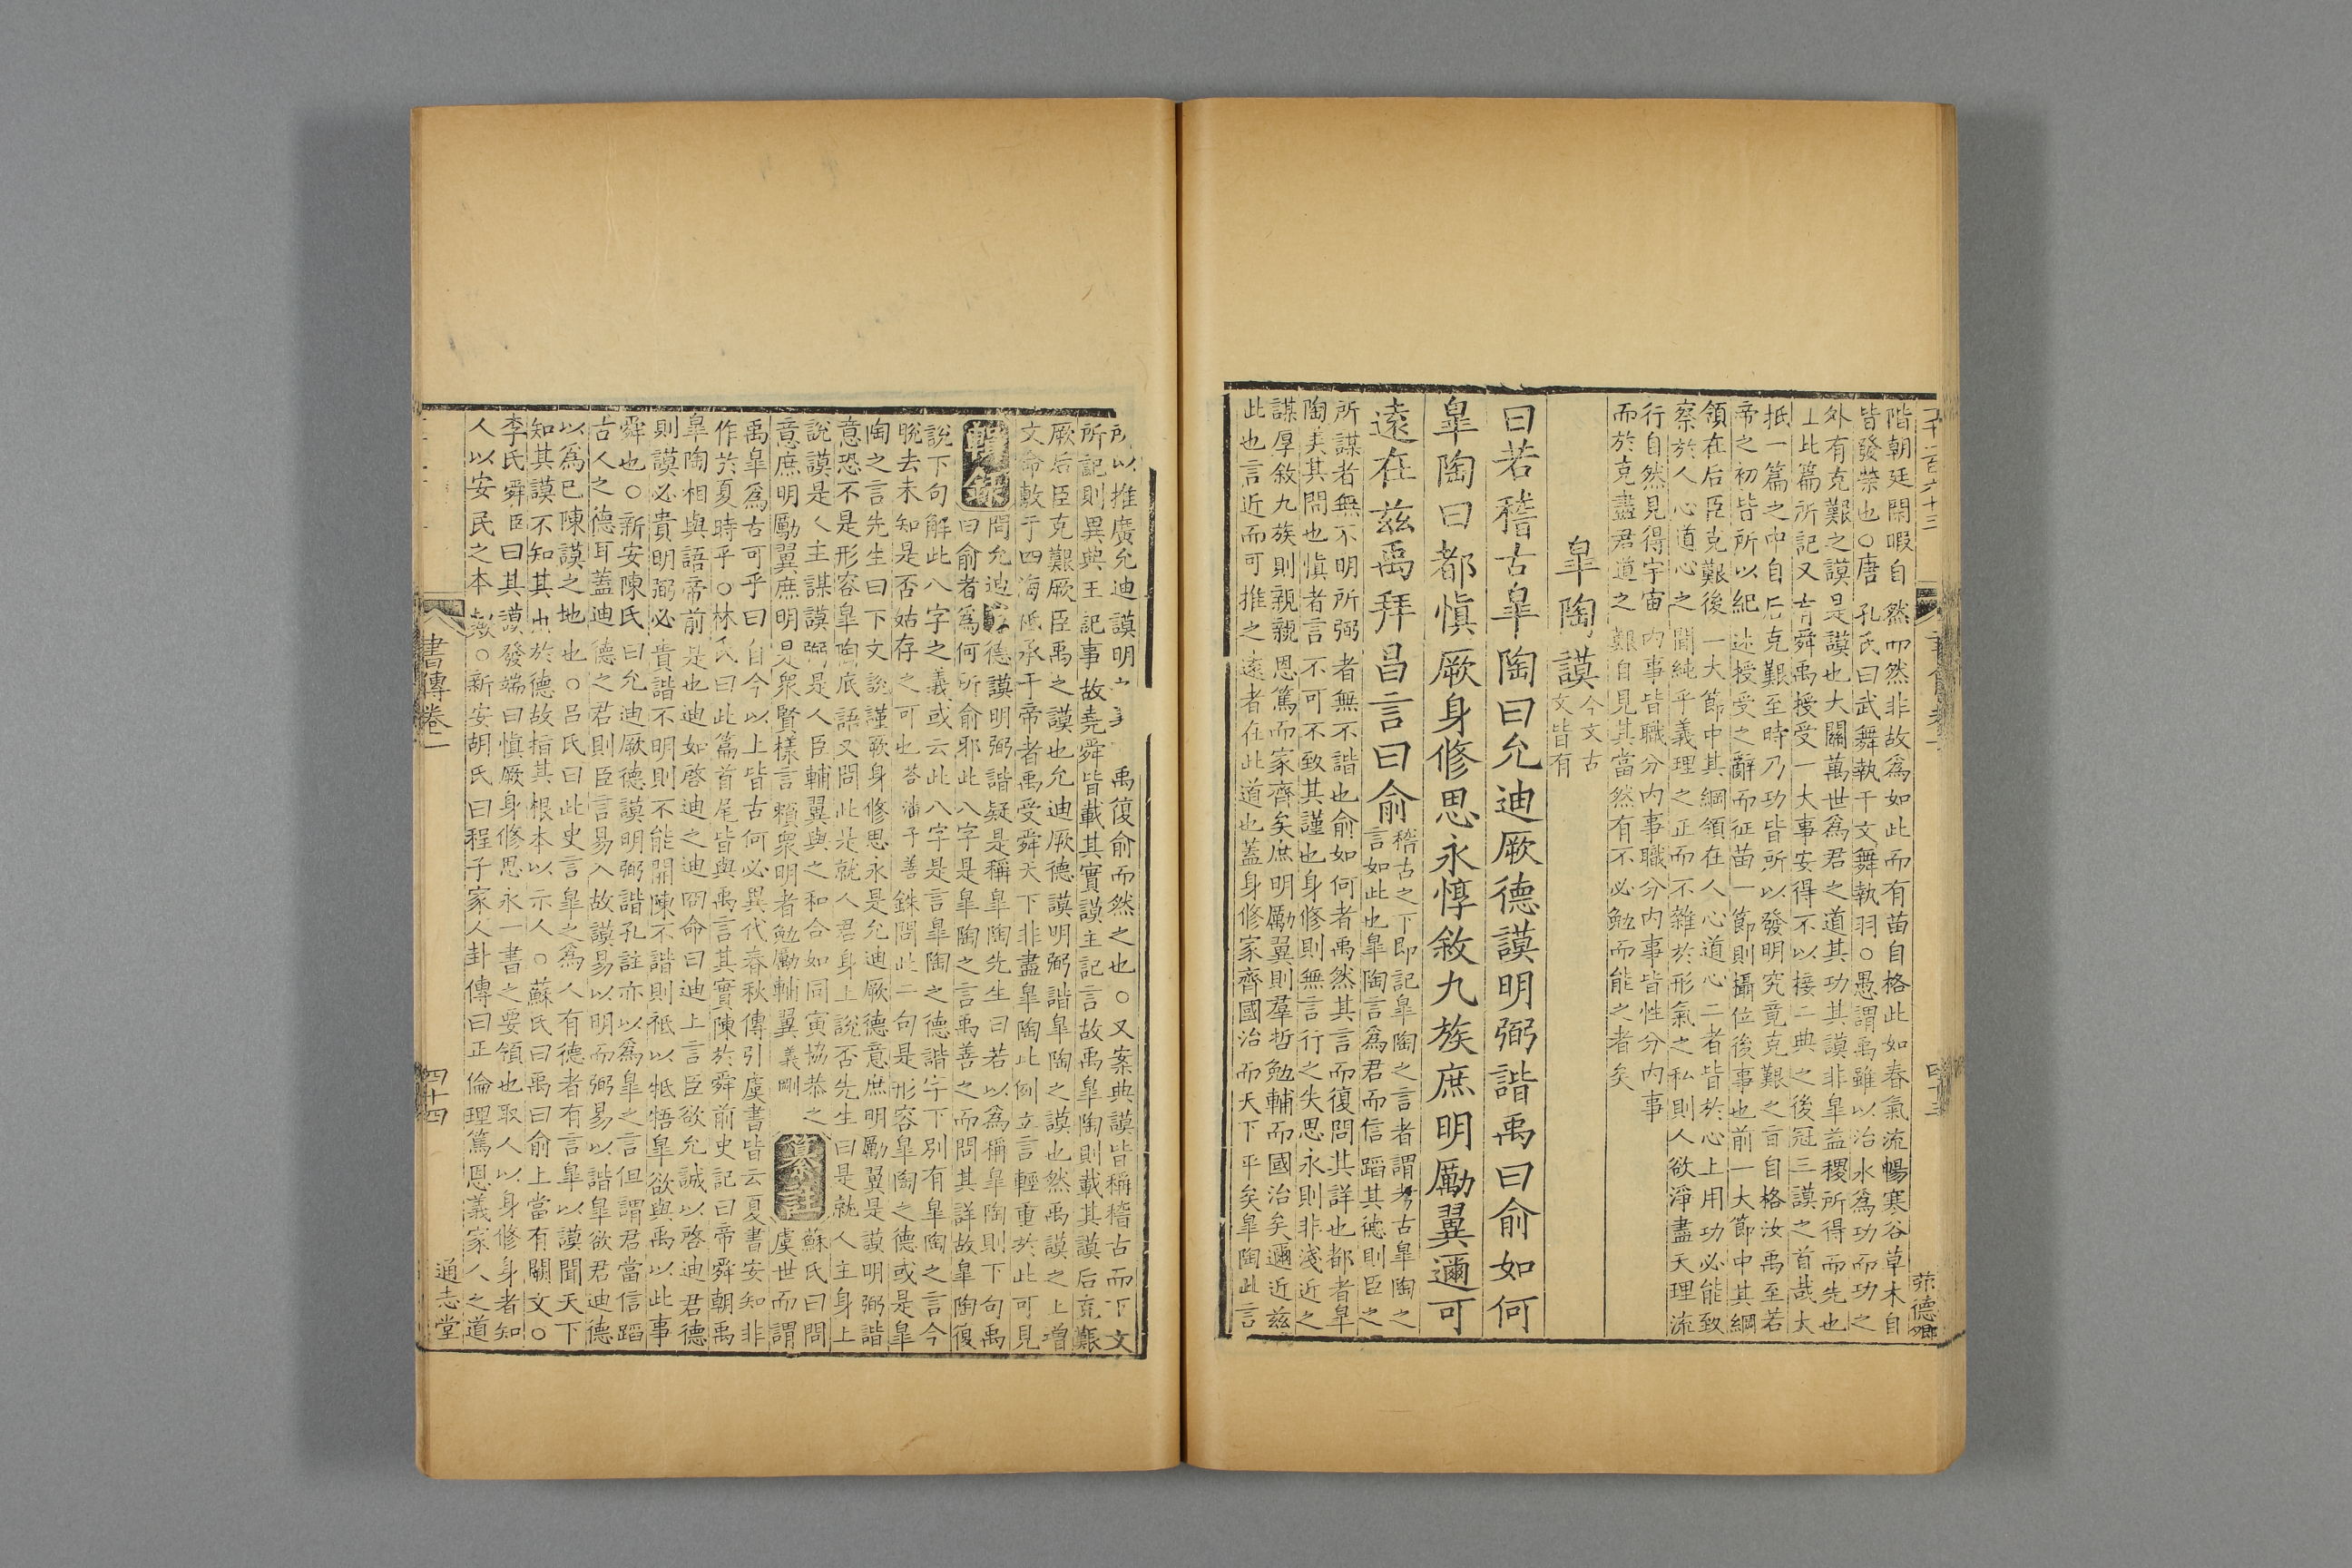 階朝廷閑暇自然而然非故為如此而有苗自格此如春氣流暢寒谷草木自
皆發榮也○唐孔氏曰武舞執干文舞執羽○愚謂禹雖以治水爲功而功之
外有克艱之謨是謨也大關萬世爲君之道其功其謨非皐益稷所得而先也
此篇所記又有舜禹授受一大事安得不以接二典之後冠三謨之首哉大
抵一篇之中自后克艱至時乃功皆所以發明究竟克艱之旨自格汝禹至若
帝之初皆所以紀述授受之辭而征苗一節則攝位後事也前一大節中其綱
領在后臣克艱後一大節中其綱領在人心道心二者皆於心上用功必能致
察於人心道心之閒純乎義理之正而不雜於形氣之私則人欲淨盡天理流
行自然見得宇宙內事皆職分內事職分內事皆性分內事
而於克盡君道之艱自見其當然有不必勉而能之者矣
皐陶謨今文古文皆有
曰若稽古皐陶曰允迪厥德謨明弼諧禹曰俞如何
皐陶曰都愼厥身修思永惇敘九族庶明勵翼邇可
遠在茲禹拜昌言曰俞
稽古之下卽記皐陶之言者謂考古皐陶之
言如此也皐陶言爲君而信蹈其德則臣之
所謀者無不明所弼者無不諧也俞如何者禹然其言而復問其詳也都者皐
陶美其問也愼者言不可不致其謹也身修則無言行之失思永則非淺近之
謀厚敘九族則親親恩篤而家齊矣庶明勵翼則羣哲勉輔而國治矣邇近茲
此也言近而可推之遠者在此道也蓋身修家齊國治而天下平矣皐陶此言
所以推廣允迪謨明之義禹復俞而然之也○又案典謨皆稱稽古而下文
所記則異典主記事故堯舜皆載其實謨主記言故禹皐陶則載其謨后克艱
厥后臣克艱厥臣禹之謨也允迪厥德謨明弼諧皐陶之謨也然禹謨之上增
文命敷于四海祗承于帝者禹受舜天下非盡皐陶此例立言輕重於此可見
輯錄問允迪厥德謨明弼諧疑是稱皐陶先生曰若以爲稱皐陶則下句禹
曰俞者爲何所俞邪此八字是皐陶之言禹善之而問其詳故皐陶復
說下句解此八字之義或云此八字是言皐陶之德諧字下別有皐陶之言今
脫去未知是否姑存之可也答潘子善銖問此二句是形容皐陶之德或是皐
陶之言先生曰下文說謹厥身修思永是允迪厥德意庶明勵翼是謨明弼諧
意恐不是形容皐陶底語又問此是就人君身上說否先生曰是就人主身上
說謨是人主謀謨弼是人臣輔翼與之和合如同寅協恭之
意庶明勵翼庶明是衆賢樣言賴衆明者勉勵輔翼義剛纂註蘇氏曰問
虞世而謂
禹皐爲古可乎曰自今以上皆古何必異代春秋傳引虞書皆云夏書安知非
作於夏時乎○林氏曰此篇首尾皆與禹言其實陳於舜前史記曰帝舜朝禹
皐陶相與語帝前是也迪如啓迪之迪冏命曰迪上言臣欲允誠以啓迪君德
則謨必貴明弼必貴諧不明則不能開陳不諧則祗以牴牾皐欲與禹以此事
舜也○新安陳氏曰允迪厥德謨明弼諧孔註亦以爲皐之言但謂君當信蹈
古人之德耳蓋迪德之君則臣言易入故謨易以明而弼易以諧皐欲君迪德
以爲已陳謨之地也○呂氏曰此史言皐之爲人有德者有言皐以謨聞天下
知其謨不知其出於德故指其根本以示人○蘇氏曰禹曰俞上當有闕文○
李氏舜臣曰其謨發端曰愼厥身修思永一書之要領也取人以身修身者知
人以安民之本歟○新安胡氏曰程子家人卦傳曰正倫理篤恩義家人之道
書傳卷一
四十四
通志堂